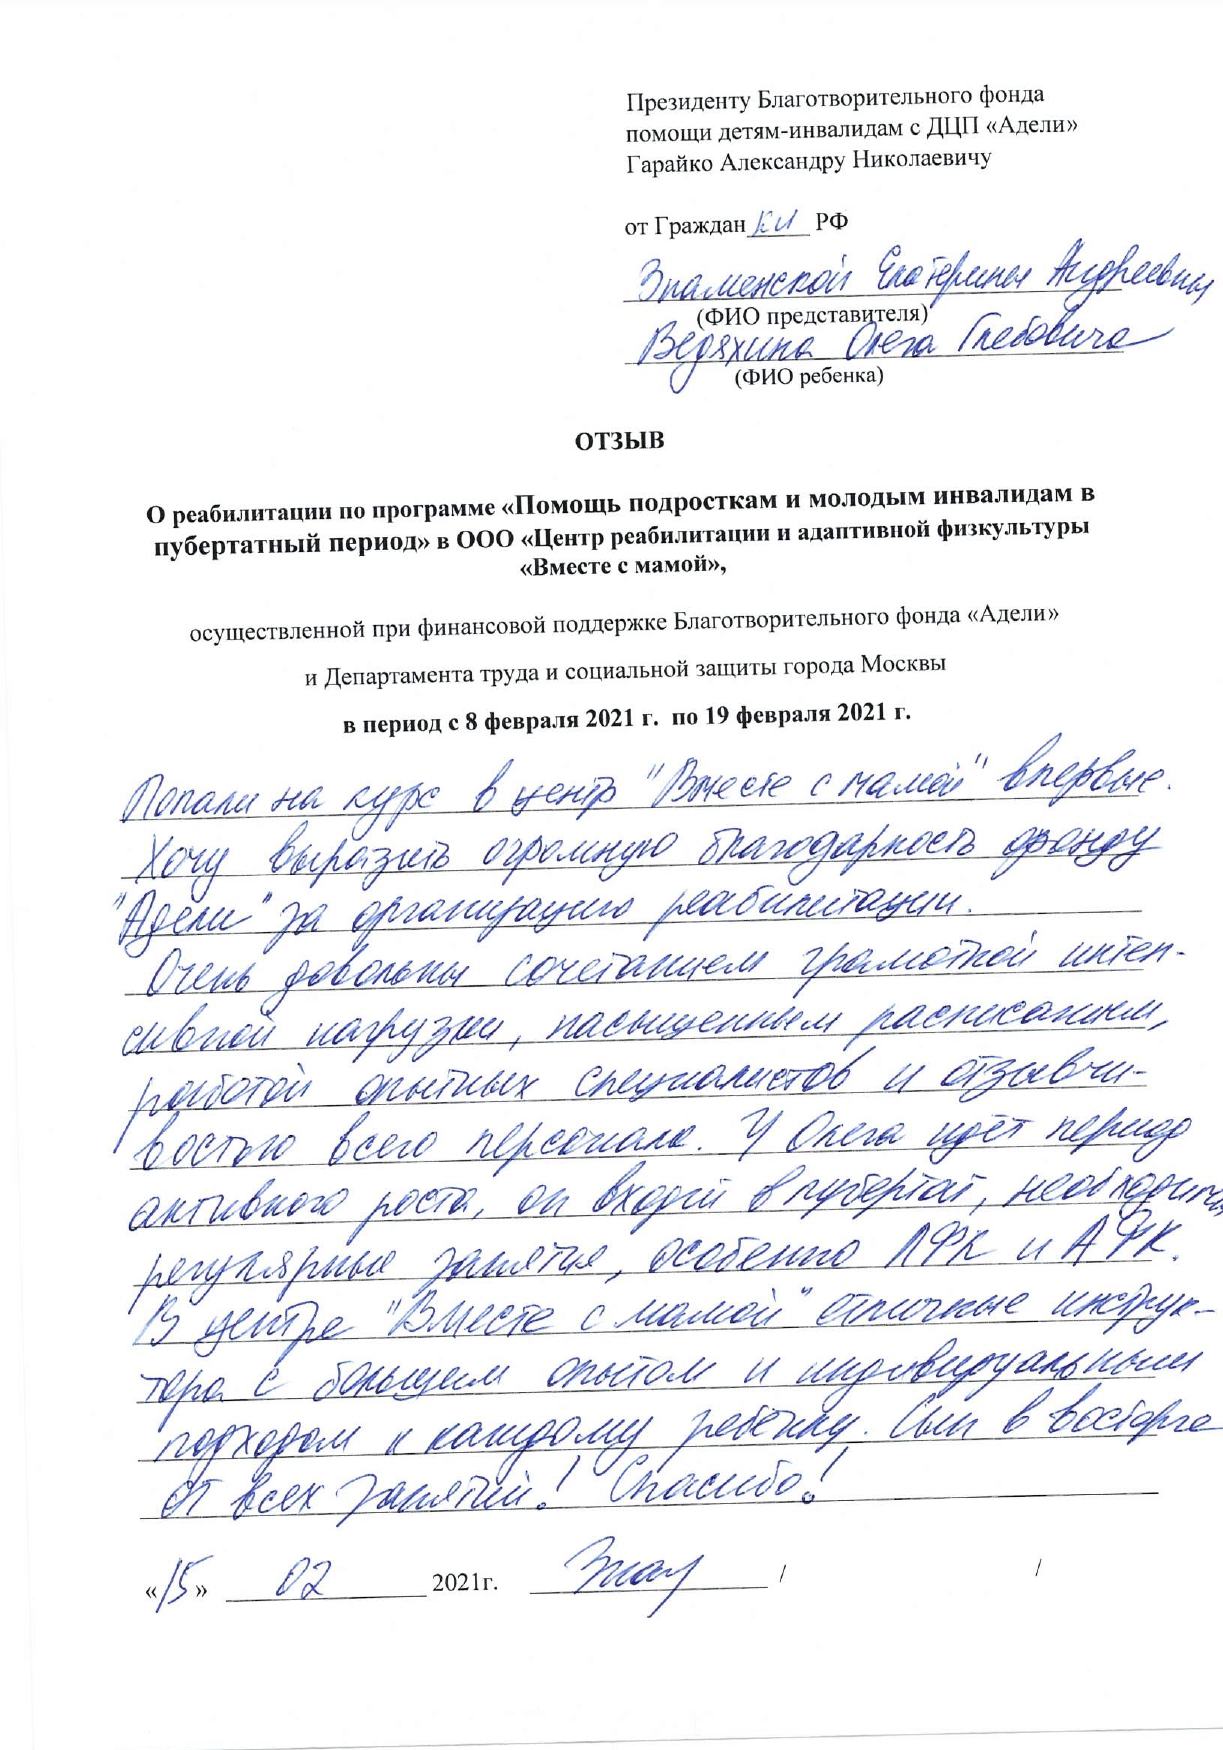 Президенту Благотворительного фонда
помощи детям-инвалидам с ДЦП «Адели»
Гарайко Александру Николаевичу
от Гражданки РФ
Знаменской Екатерины Андреевны
(ФИО представителя)
Ведяхина Олега Глебовича
(ФИО ребенка)
ОТЗЫВ
О реабилитации по программе «Помощь подросткам и молодым инвалидам в
пубертатный период» в ООО «Центр реабилитации и адаптивной физкультуры
«Вместе с мамой»,
осуществленной при финансовой поддержке Благотворительного фонда «Адели»
и Департамента труда и социальной защиты города Москвы
в период с 8 февраля 2021 г. по 19 февраля 2021 г.
Попали на курс в центр "Вместе с мамой" впервые.
Хочу выразить огромную благодарность фонду
"Адели" за организацию реабилитации.
Очень довольны сочетанием грамотной интен-
сивной нагрузки, насыщенным расписанием,
работой опытных специалистов и отзывчи-
востью всего персонала. У Олега идёт период
активного роста, он входит в пубертат, необходимы
регулярные занятия, особенно ЛФК и АФК.
В центре "Вместе с мамой" отличные инструк-
тора с большим опытом и индивидуальным
подходом к каждому ребёнку. Сын в восторге
от всех занятий! Спасибо!
«15» 02 2021г. Знам / /